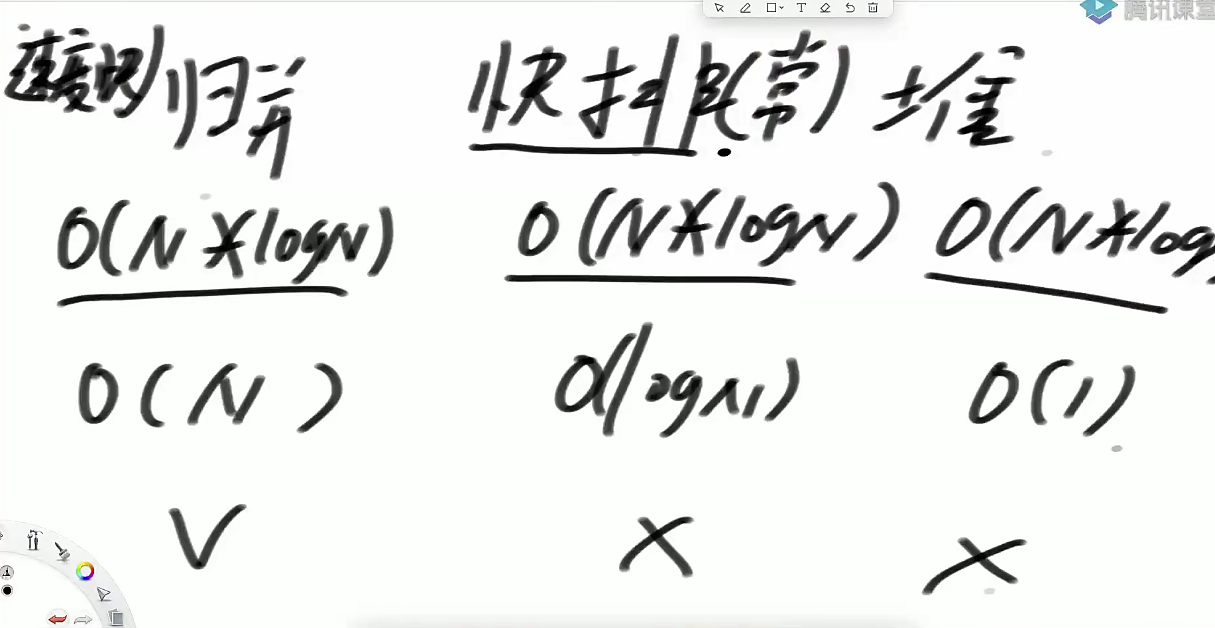 腾讯课堂
速度快 归并 快排(常) 堆
O(N*logN) O(N*logN) O(N*log
O(N) O(logN) O(1)
√ × ×